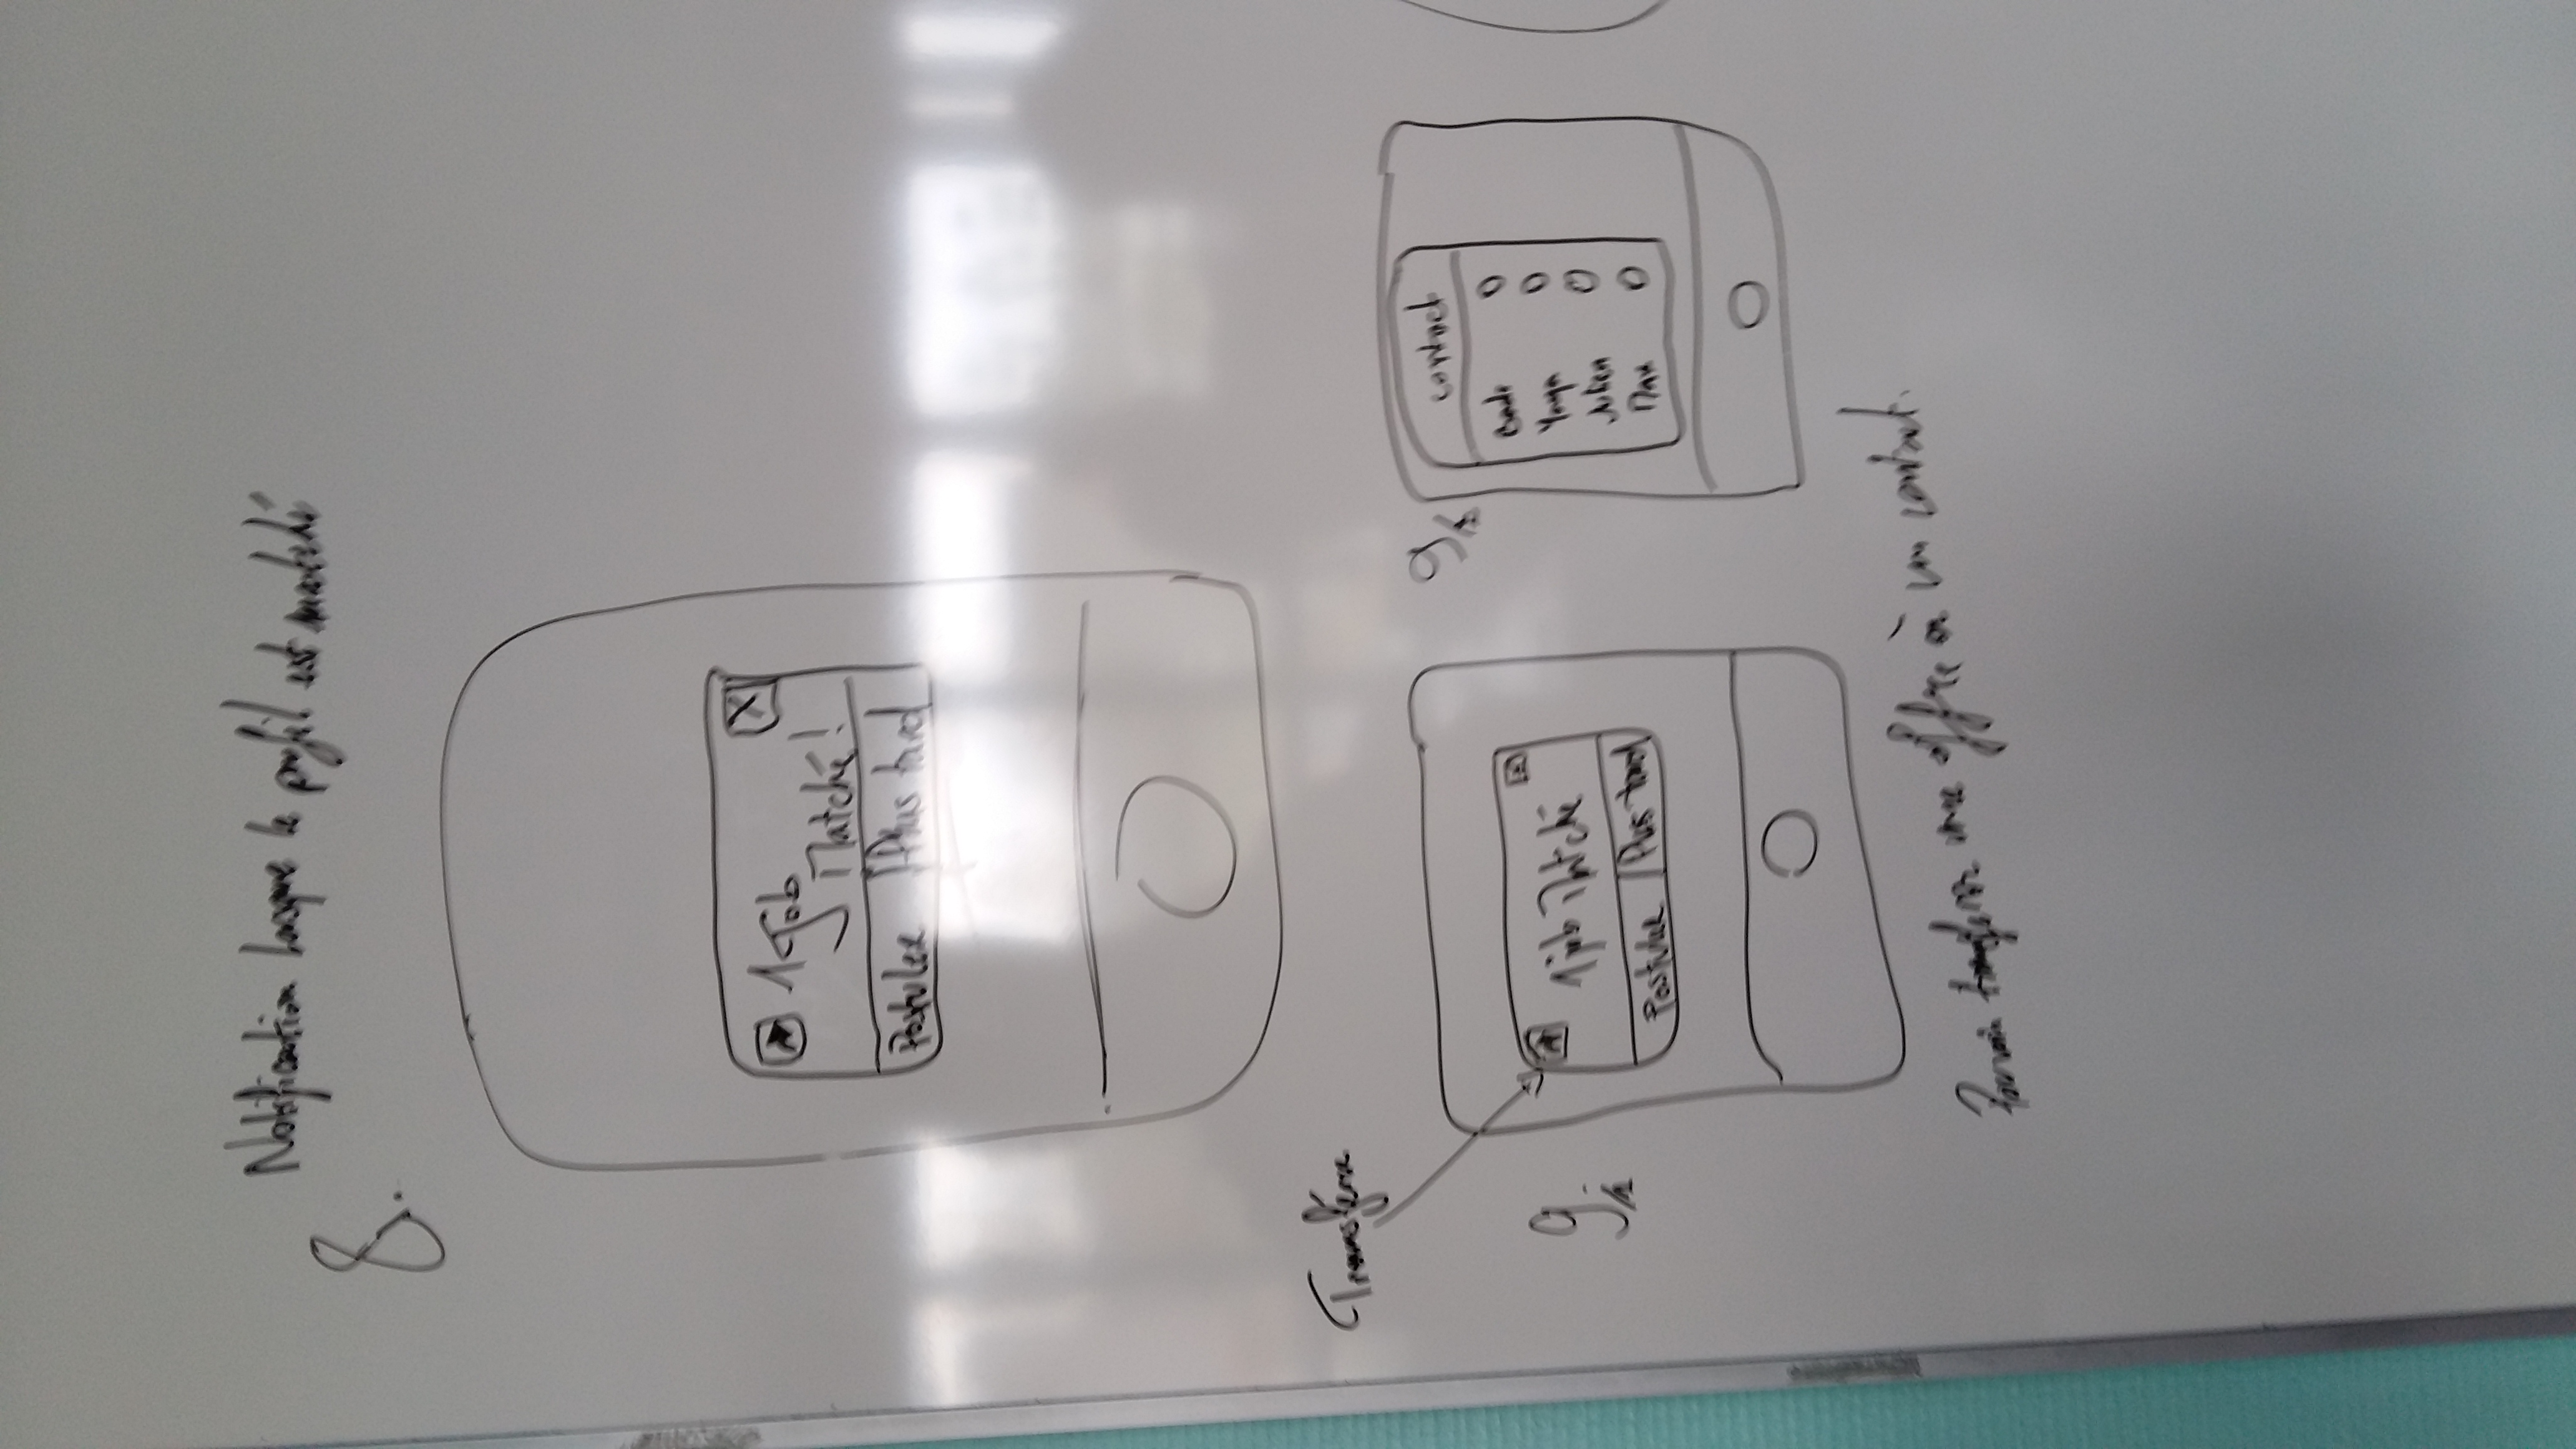 Notification lorsque le profil est matché
8.
1 Job
Matché!
X
Postuler
Plus tard
Transfère
9/1
1 job Matché
x
Postuler
Plus tard
9/2
contact
Yaya
Julien
Max
Pouvoir transferer une offre à un contact.